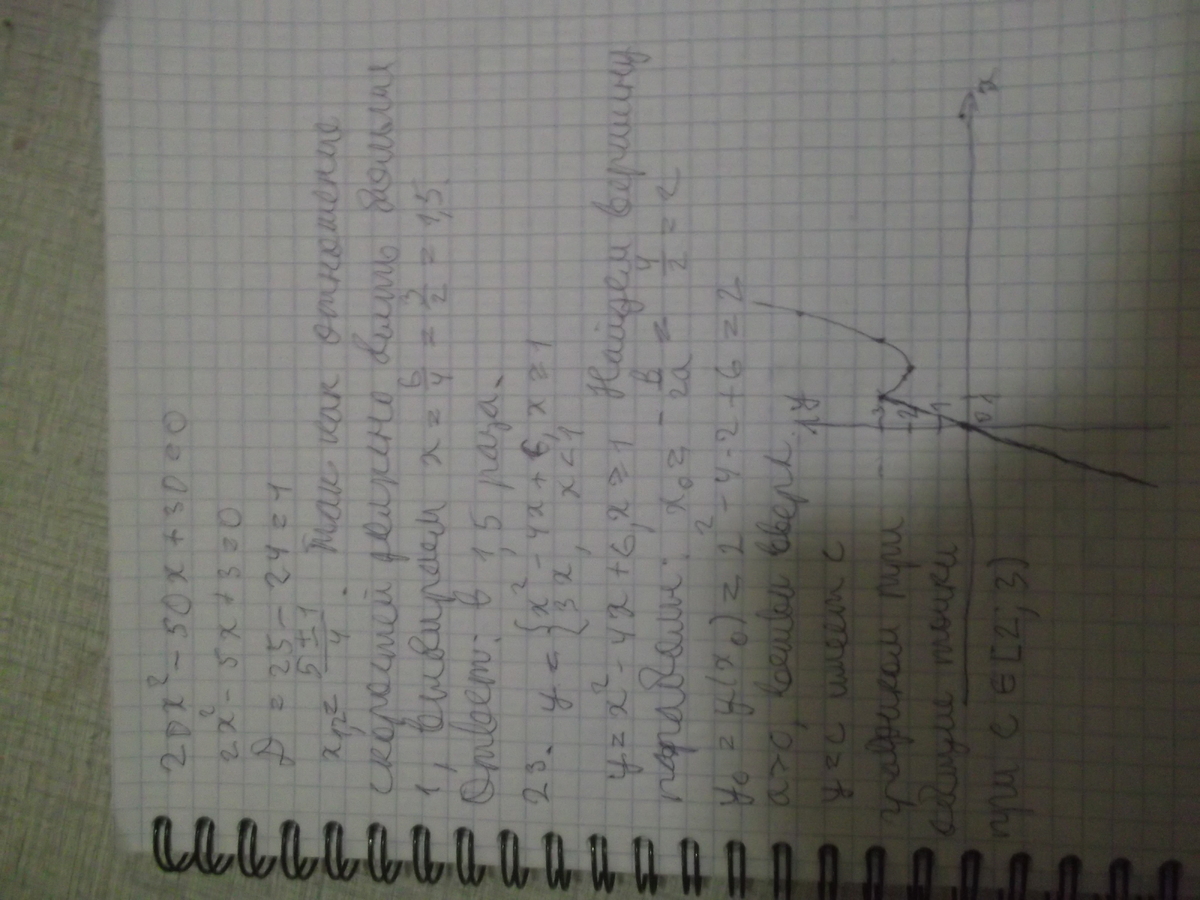 20x² - 50x + 30 = 0
2x² - 5x + 3 = 0
D = 25 - 24 = 1
x₁,₂ = (5 ± 1)/4. Так как отношение
скоростей должно быть больше
1, выбираем x = 6/4 = 3/2 = 1,5.
Ответ: в 1,5 раза.
23. y = { x² - 4x + 6, x ≥ 1
{ 3x, x < 1
y = x² - 4x + 6, x ≥ 1 Найдем вершину
параболы: x₀ = -в/2a = 4/2 = 2
y₀ = y(x₀) = 2² - 4·2 + 6 = 2
a > 0, ветви вверх.
y = c имеет с
графиком при
общие точки
при c ∈ [2; 3)
y
3
2
1
0 1
x